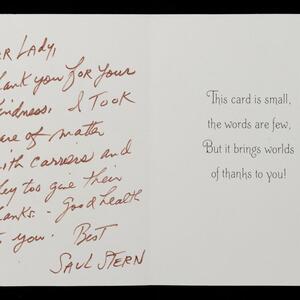 AR LADY,
hank you FOR your
indness. I TOOK
are of matter
ith carriers and
hey too give their
hanks. - Good health
to you. Best
SAUL STERN
This card is small,
the words are few,
But it brings worlds
of thanks to you!